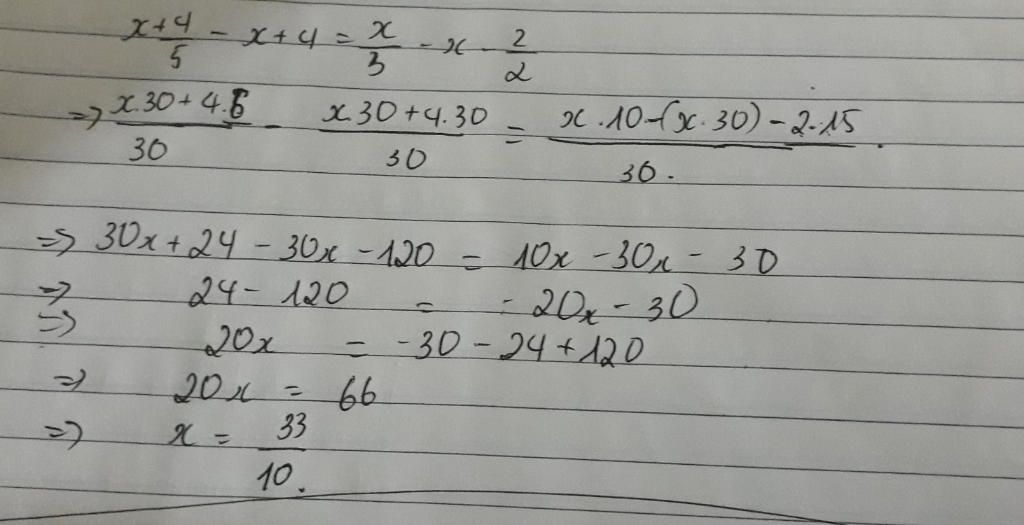 x+4/5 - x + 4 = x/3 - x - 2/2
=> x.30 + 4.6/30 - x.30 + 4.30/30 = x.10 - (x.30) - 2.15/30.
=> 30x + 24 - 30x - 120 = 10x - 30x - 30
=> 24 - 120 = - 20x - 30
=> 20x = -30 - 24 + 120
=> 20x = 66
=> x = 33/10.